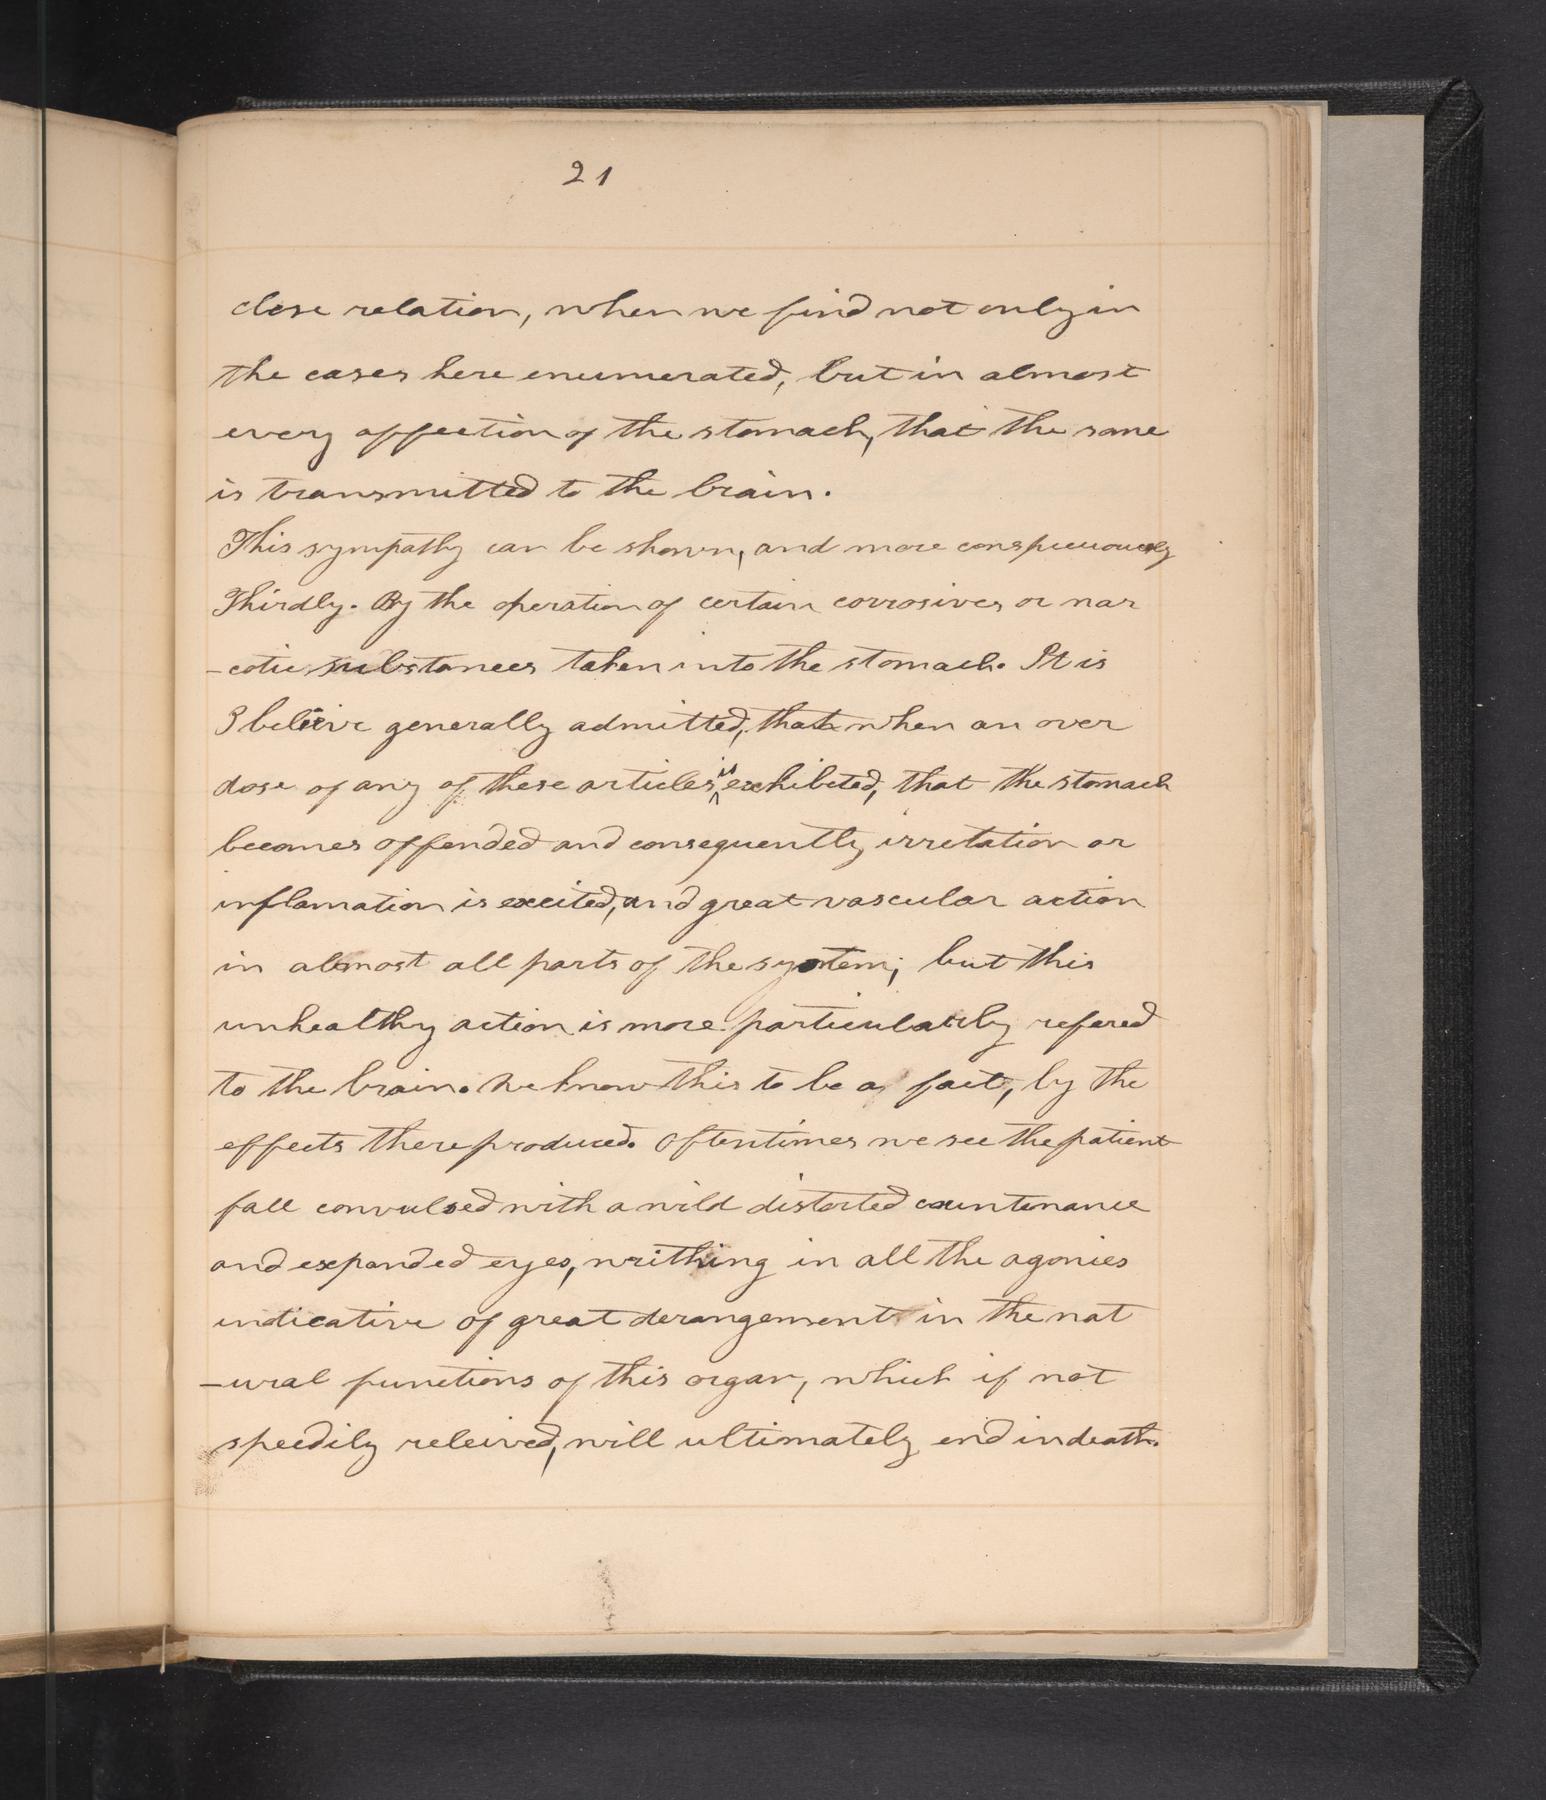 21
close relation, when we find not only in
the cases here enumerated, but in almost
every affection of the stomach, that the same
is transmitted to the brain.
This sympathy can be shown, and more conspicuously
Thirdly. By the operation of certain corrosives or nar
-cotic substances taken into the stomach. It is
I beleive generally admitted, that when an over
dose of any of these articles is exhibited, that the stomach
becomes offended and consequently irretation or
inflamation is excited, and great vascular action
in almost all parts of the system; but this
unhealthy action is more particularly refered
to the brain. We know this to be a fact, by the
effects there produced. Oftentimes we see the patient
fall convulsed with a wild distorted countenance
and expanded eyes, writhing in all the agonies
indicative of great derangement in the nat
-ural functions of this organ, which if not
speedily releived, will ultimately end in death.